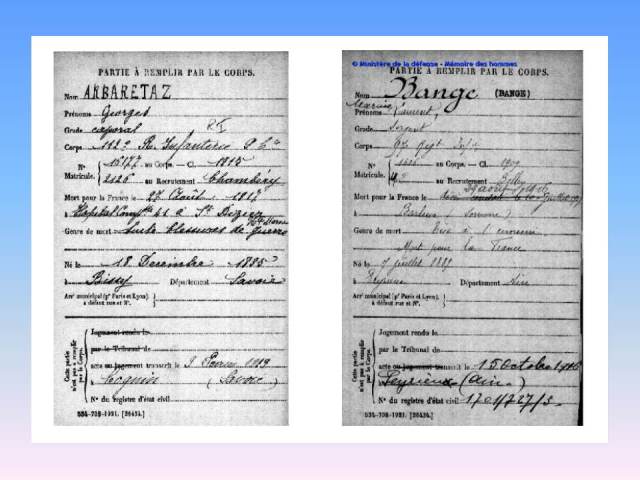 PARTIE À REMPLIR PAR LE CORPS.
Nom ARBARETAZ
Prénoms Georges
Grade caporal
Corps 112e R. Infanterie
N° 15177 au Corps. — Cl. 1915
Matricule. 2126 au Recrutement Chambéry
Mort pour la France le 27 Août 1917
à Hôpital Compre 41 à St Dizier Hte Marne
Genre de mort Suite blessures de guerre
Né le 18 Décembre 1895
à Bissy Département Savoie
Arr municipal (pr Paris et Lyon), à défaut rue et N°.
Cette partie n'est pas à remplir par le Corps.
Jugement rendu le
par le Tribunal de
acte ou jugement transcrit le 9 Février 1919
à Cognin (Savoie)
N° du registre d'état civil
534-708-1921. [26434.]
© Ministère de la défense - Mémoire des hommes
PARTIE À REMPLIR PAR LE CORPS.
Nom Bange (BANGE)
Prénoms
Grade Sergent
Corps
N° au Corps. — Cl. 1909
Matricule. au Recrutement Belley
Mort pour la France le
à Barleux (Somme)
Genre de mort Tué à l'ennemi
Mort pour la France
Né le 7 juillet 1889
à Leyrieu Département Ain
Arr municipal (pr Paris et Lyon), à défaut rue et N°.
Cette partie n'est pas à remplir par le Corps.
Jugement rendu le
par le Tribunal de
acte ou jugement transcrit le 15 Octobre 1916
Leyrieux (Ain)
N° du registre d'état civil 1701/727/5
534-708-1921. [26434.]